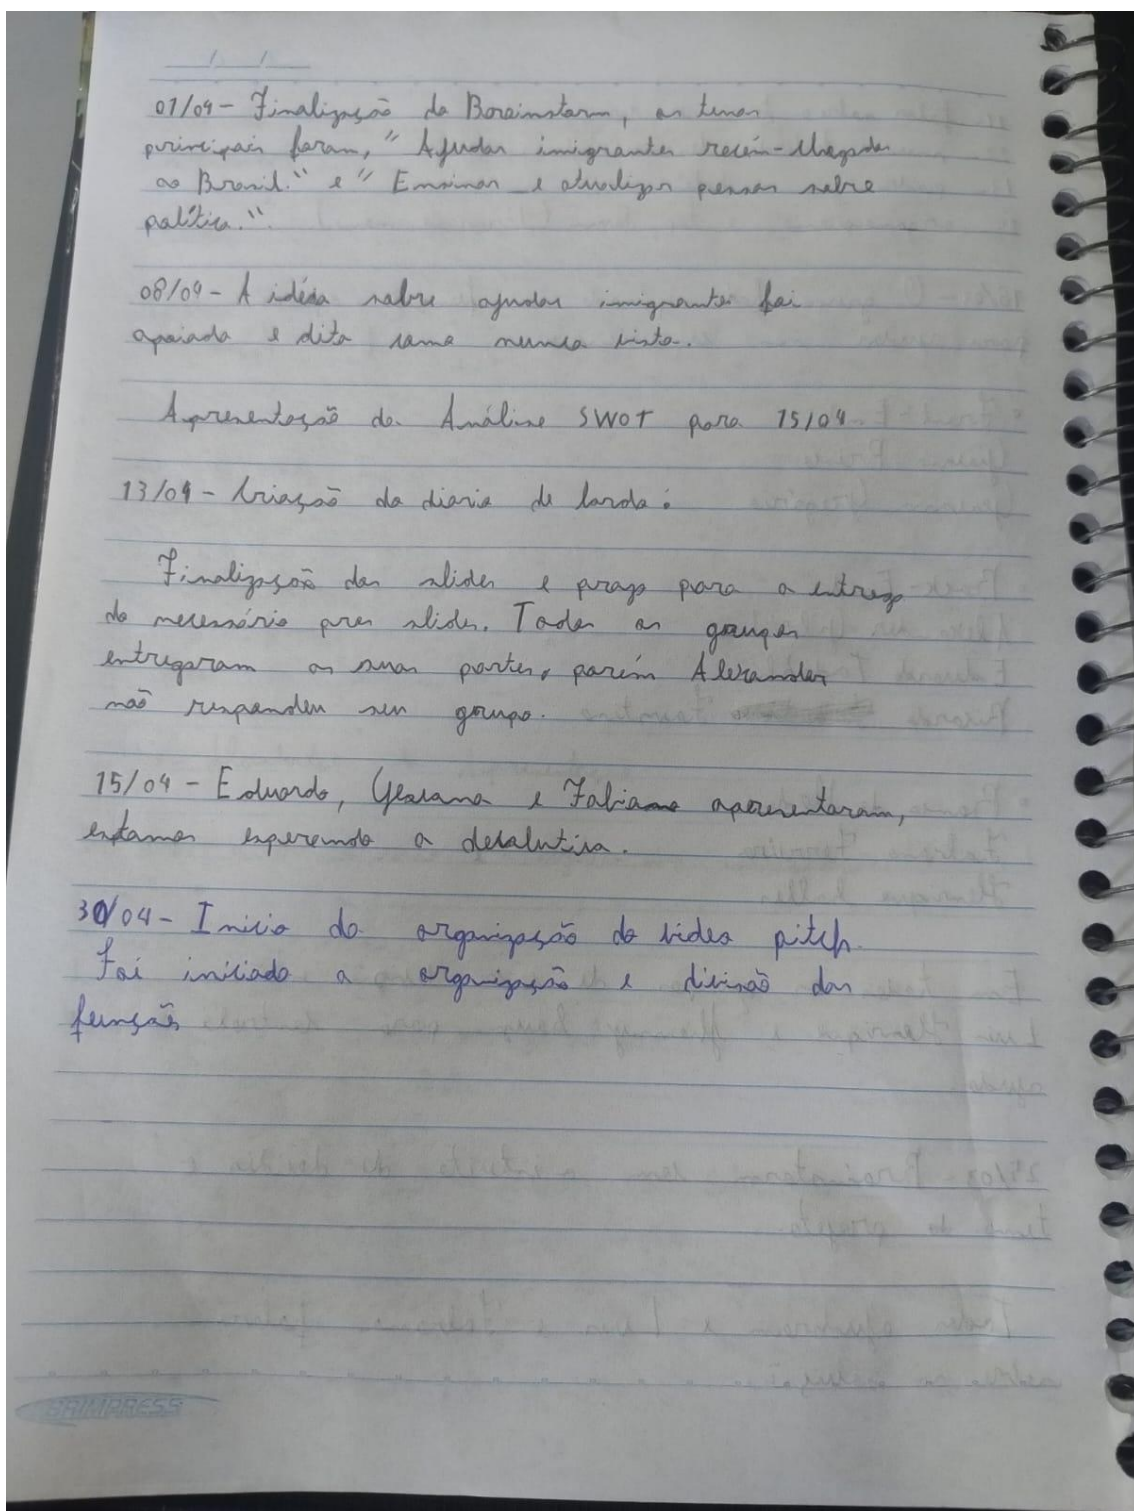 / /
01/04 - Finalização do Boreinstorm, os temas
principais foram, "Ajudar imigrantes recém-chegados
ao Brasil." e "Ensinar e atualizar pessoas sobre
política.".
08/04 - A idéia sobre ajudar imigrantes foi
apoiada e dita como nunca vista.
Apresentação da Análise SWOT para 15/04
13/04 - Criação do diario de bordo:
Finalização dos slides e prazo para a entrega
do necessário pros slides. Todos os grupos
entregaram as suas partes, porém Alexander
não respondeu seu grupo.
15/04 - Eduardo, Geovana e Fabiano apresentaram,
estamos esperando a devolutiva.
30/04 - Inicio da organização do video pitch.
Foi iniciado a organização e divisão das
funções
GRIMPRESS